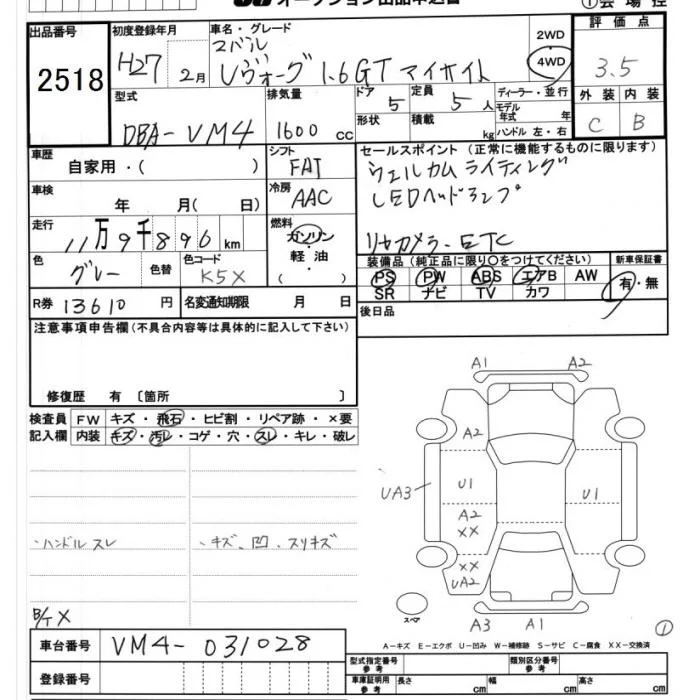 オークション出品申込書
①会場控
出品番号 2518
初度登録年月 H27 2月
車名・グレード スバル
レヴォーグ 1.6GT アイサイト
2WD
4WD
評価点 3.5
外装 内装
C B
型式 DBA-VM4
排気量 1600 cc
ドア 5
定員 5 人
形状
積載 kg
ディーラー・並行
モデル年式 年
ハンドル 左・右
車歴 自家用・( )
シフト FAT
車検 年 月( 日)
冷房 AAC
走行 11万9千896 km
燃料 ガソリン・軽油
( )
色 グレー 色替
色コード K5X
R券 13610 円
名変通知期限 月 日
セールスポイント (正常に機能するものに限ります)
ウェルカムライティング
LEDヘッドランプ
リヤカメラ、ETC
装備品 (純正品に限り○をつけてください)
PS PW ABS エアB AW
SR ナビ TV カワ
新車保証書
有・無
後日品
注意事項申告欄(不具合内容等は具体的に記入して下さい)
修復歴 有 〔箇所 〕
検査員記入欄
FW キズ・飛石・ヒビ割・リペア跡・×要
内装 キズ・汚レ・コゲ・穴・スレ・キレ・破レ
・ハンドルスレ
・キズ、凹、スリキズ
A1 A2
A2
U1 U1
UA3
A2
XX
XX
UA2
スペア
A3 A1
①
車台番号 VM4-031028
登録番号
A-キズ E-エクボ U-凹み W-補修跡 S-サビ C-腐食 XX-交換済
型式指定番号 参考
類別区分番号 参考
車庫証明用 参考
長さ cm
幅 cm
高さ cm